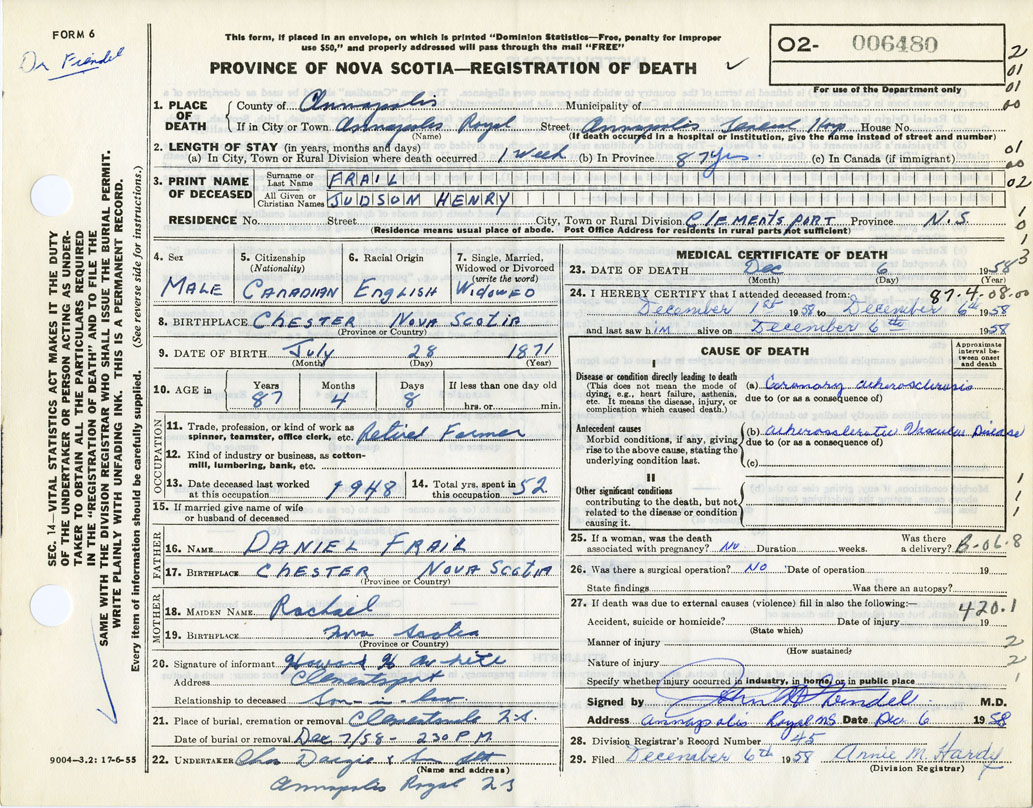 FORM 6
Dr Frendel
This form, if placed in an envelope, on which is printed "Dominion Statistics—Free, penalty for improper
use $50," and properly addressed will pass through the mail "FREE"
PROVINCE OF NOVA SCOTIA—REGISTRATION OF DEATH
02- 006480
For use of the Department only
2
01
01
00
01
00
02
1
0
1
3
SEC. 14—VITAL STATISTICS ACT MAKES IT THE DUTY
OF THE UNDERTAKER OR PERSON ACTING AS UNDER-
TAKER TO OBTAIN ALL THE PARTICULARS REQUIRED
IN THE "REGISTRATION OF DEATH" AND TO FILE THE
SAME WITH THE DIVISION REGISTRAR WHO SHALL ISSUE THE BURIAL PERMIT.
WRITE PLAINLY WITH UNFADING INK. THIS IS A PERMANENT RECORD.
Every item of information should be carefully supplied. (See reverse side for instructions.)
1. PLACE OF DEATH
County of Annapolis Municipality of
If in City or Town Annapolis Royal Street Annapolis General Hosp House No.
(Name) (If death occurred in a hospital or institution, give the name instead of street and number)
2. LENGTH OF STAY (in years, months and days)
(a) In City, Town or Rural Division where death occurred 1 week (b) In Province 87 yrs. (c) In Canada (if immigrant)
3. PRINT NAME OF DECEASED
Surname or Last Name FRAIL
All Given or Christian Names JUDSOM HENRY
RESIDENCE No. Street City, Town or Rural Division CLEMENTSPORT Province N.S.
(Residence means usual place of abode. Post Office Address for residents in rural parts not sufficient)
4. Sex
MALE
5. Citizenship (Nationality)
CANADIAN
6. Racial Origin
ENGLISH
7. Single, Married, Widowed or Divorced (write the word)
WIDOWED
8. BIRTHPLACE CHESTER NOVA SCOTIA
(Province or Country)
9. DATE OF BIRTH July 28 1871
(Month) (Day) (Year)
10. AGE in Years Months Days If less than one day old
87 4 8 hrs. or min.
OCCUPATION
11. Trade, profession, or kind of work as
spinner, teamster, office clerk, etc. Retired Farmer
12. Kind of industry or business, as cotton-
mill, lumbering, bank, etc.
13. Date deceased last worked at this occupation 1948
14. Total yrs. spent in this occupation 52
15. If married give name of wife
or husband of deceased
FATHER
16. NAME DANIEL FRAIL
17. BIRTHPLACE CHESTER NOVA SCOTIA
(Province or Country)
MOTHER
18. MAIDEN NAME Rachael
19. BIRTHPLACE Nova Scotia
(Province or Country)
20. Signature of informant Howard
Address Clementsport
Relationship to deceased Son-in-law
21. Place of burial, cremation or removal
Date of burial or removal Dec 7/58 - 230 P.M.
22. UNDERTAKER & Son
(Name and address)
Annapolis Royal
9004—3.2: 17-6-55
MEDICAL CERTIFICATE OF DEATH
23. DATE OF DEATH Dec 6 1958
(Month) (Day) (Year)
24. I HEREBY CERTIFY that I attended deceased from: 87-4-08-00
December 1st 1958 to December 6th 1958
and last saw him alive on December 6th 1958
CAUSE OF DEATH
Approximate interval between onset and death
I
Disease or condition directly leading to death
(This does not mean the mode of
dying, e.g., heart failure, asthenia,
etc. It means the disease, injury, or
complication which caused death.)
(a) Coronary atherosclerosis
due to (or as a consequence of)
Antecedent causes
Morbid conditions, if any, giving
rise to the above cause, stating the
underlying condition last.
(b) atherosclerotic Vascular Disease
due to (or as a consequence of)
(c)
II
Other significant conditions
contributing to the death, but not
related to the disease or condition
causing it.
1
1
1
25. If a woman, was the death
associated with pregnancy? No Duration weeks. Was there a delivery? B-06-8
26. Was there a surgical operation? No Date of operation 19
State findings Was there an autopsy?
27. If death was due to external causes (violence) fill in also the following:— 420.1
Accident, suicide or homicide? Date of injury 19
(State which)
Manner of injury 2
(How sustained)
Nature of injury 2
Specify whether injury occurred in industry, in home, or in public place 1
Signed by John Frendel M.D.
Address Annapolis Royal NS Date Dec. 6 1958
28. Division Registrar's Record Number 45
29. Filed December 6th 1958 Annie M. Hardy
(Division Registrar)